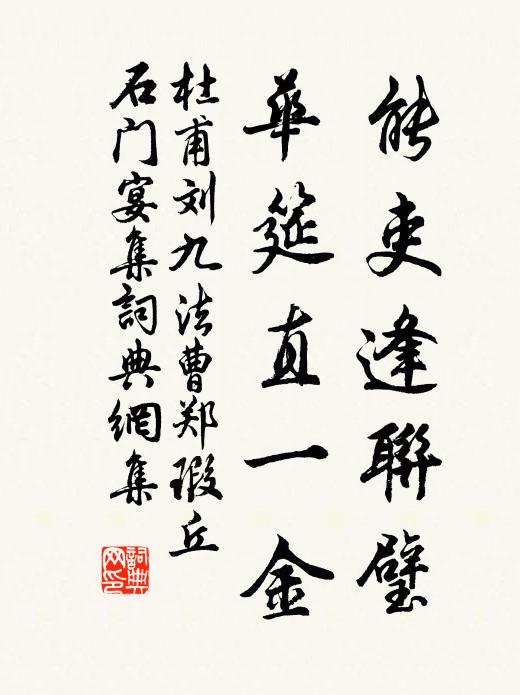 能吏逢聯璧
華筵直一金
杜甫刘九法曹郑瑕丘
石门宴集詞典網集
詞典网印